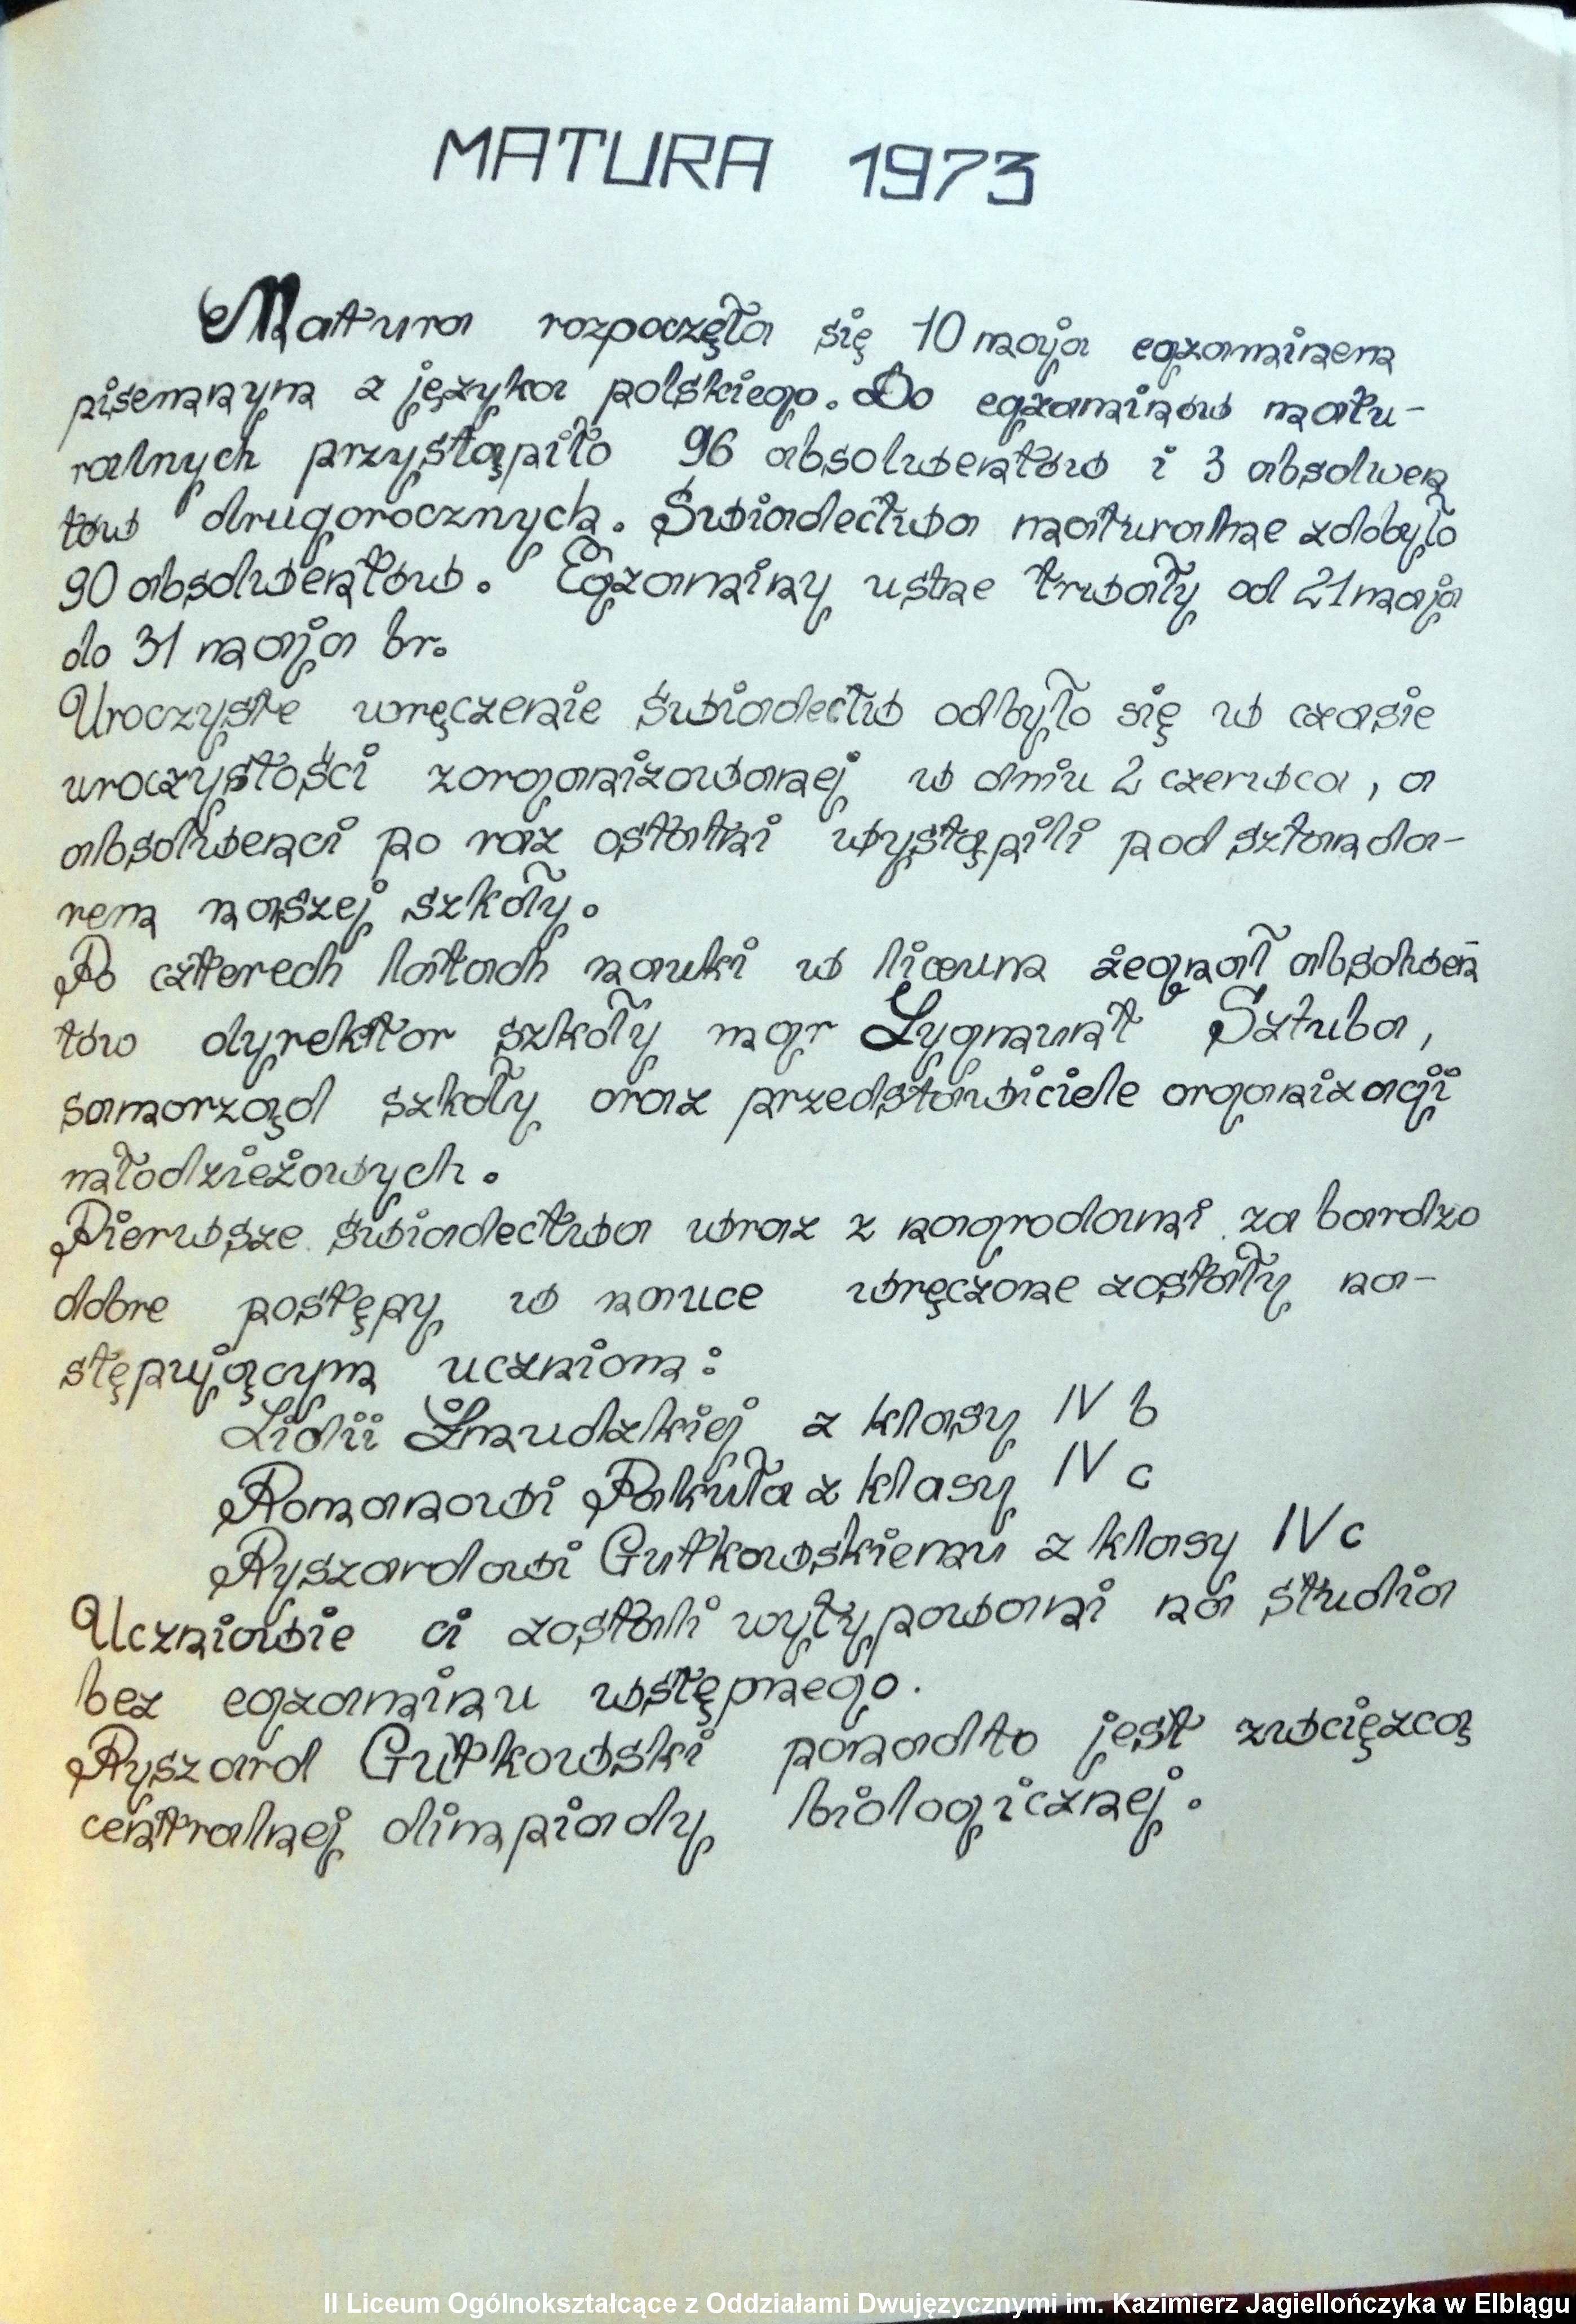 MATURA 1973
Matura rozpoczęła się 10 maja egzaminem
pisemnym z języka polskiego. Do egzaminów matu-
ralnych przystąpiło 96 absolwentów i 3 absolwen
tów drugorocznych. Świadectwa maturalne zdobyło
90 absolwentów. Egzaminy ustne trwały od 21 maja
do 31 maja br.
Uroczyste wręczenie świadectw odbyło się w czasie
uroczystości zorganizowanej w dniu 2 czerwca, a
absolwenci po raz ostatni wystąpili pod sztanda-
rem naszej szkoły.
Po czterech latach nauki w liceum żegnał absolwen
tów dyrektor szkoły mgr Zygmunt Sztuba,
samorząd szkoły oraz przedstawiciele organizacji
młodzieżowych.
Pierwsze świadectwa wraz z nagrodami za bardzo
dobre postępy w nauce wręczone zostały na-
stępującym uczniom:
Lidii Żmudzkiej z klasy IV b
Romanowi Pakuła z klasy IV c
Ryszardowi Gutkowskiemu z klasy IV c
Uczniowie ci zostali wytypowani na studia
bez egzaminu wstępnego.
Ryszard Gutkowski ponadto jest zwcięzcą
centralnej olimpiady biologicznej.
II Liceum Ogólnokształcące z Oddziałami Dwujęzycznymi im. Kazimierz Jagiellończyka w Elblągu